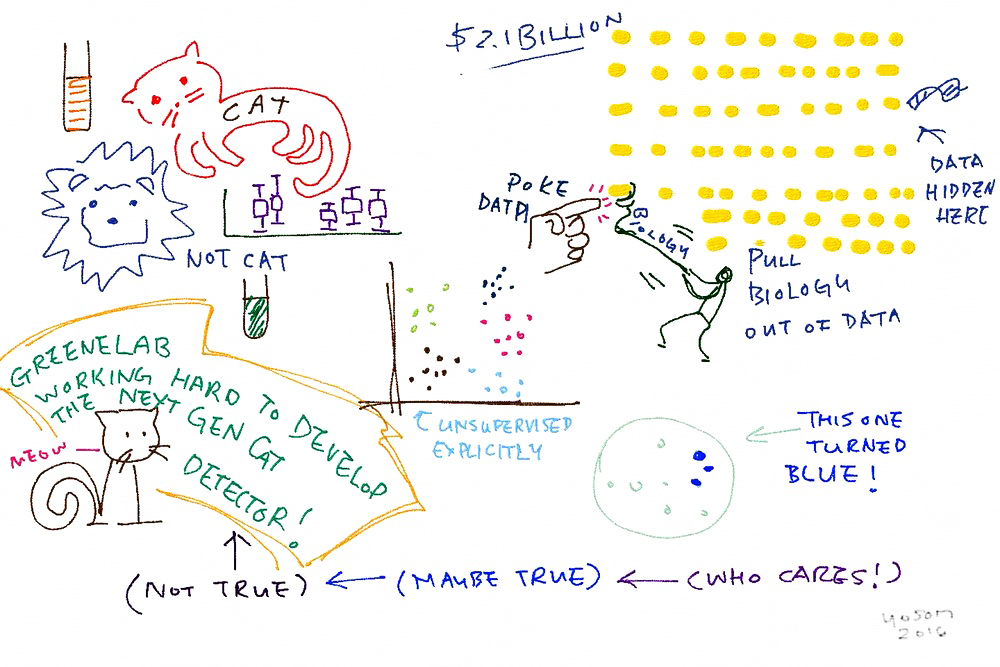 $2.1 BILLION
CAT
NOT CAT
POKE
DATA
BIOLOGY
DATA
HIDDEN
HERE
PULL
BIOLOGY
OUT OF DATA
GREENELAB
WORKING HARD TO DEVELOP
THE NEXT GEN CAT
DETECTOR!
MEOW
UNSUPERVISED
EXPLICITLY
THIS ONE
TURNED
BLUE!
(NOT TRUE) ← (MAYBE TRUE) ← (WHO CARES!)
yoson
2016